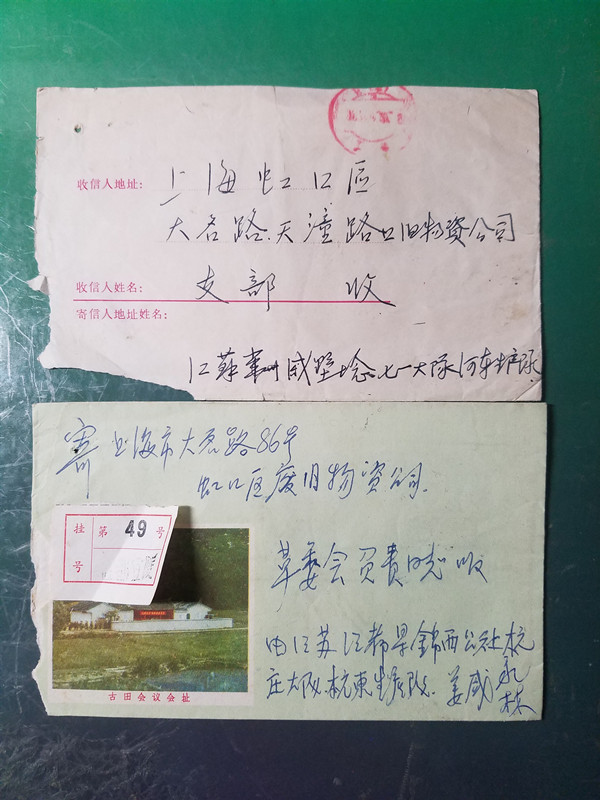 收信人地址:
上海虹口區
大名路.天潼路 旧物資公司
收信人姓名:
支部 收
寄信人地址姓名:
江蘇 戚墅堰 七一大隊河东生产队
寄 上海市大名路86号
虹口区废旧物资公司.
挂号
第 49 号
革委会 负责 收
由江苏江都县锦西公社杭
庄大队.杭東生产队. 姜盛
林
古田会议会址